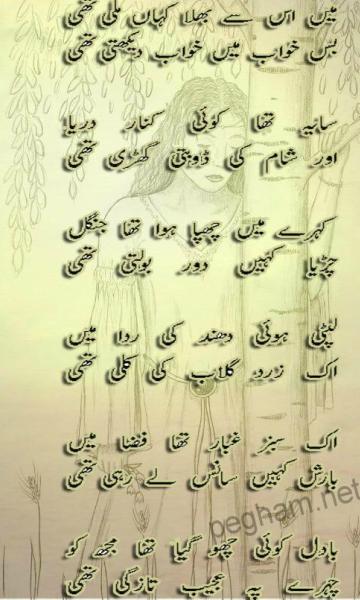 میں اس سے بھلا کہاں ملی تھی
بس خواب میں خواب دیکھتی تھی
سایہ تھا کوئی کنار دریا
اور شام کی ڈوبتی گھڑی تھی
کہرے میں چھپا ہوا تھا جنگل
چڑیا کہیں دور بولتی تھی
لپٹی ہوئی دھند کی ردا میں
اک زرد گلاب کی کلی تھی
اک سبز غبار تھا فضا میں
بارش کہیں سانس لے رہی تھی
بادل کوئی چھو گیا تھا مجھ کو
چہرے پہ عجیب تازگی تھی
pegham.net